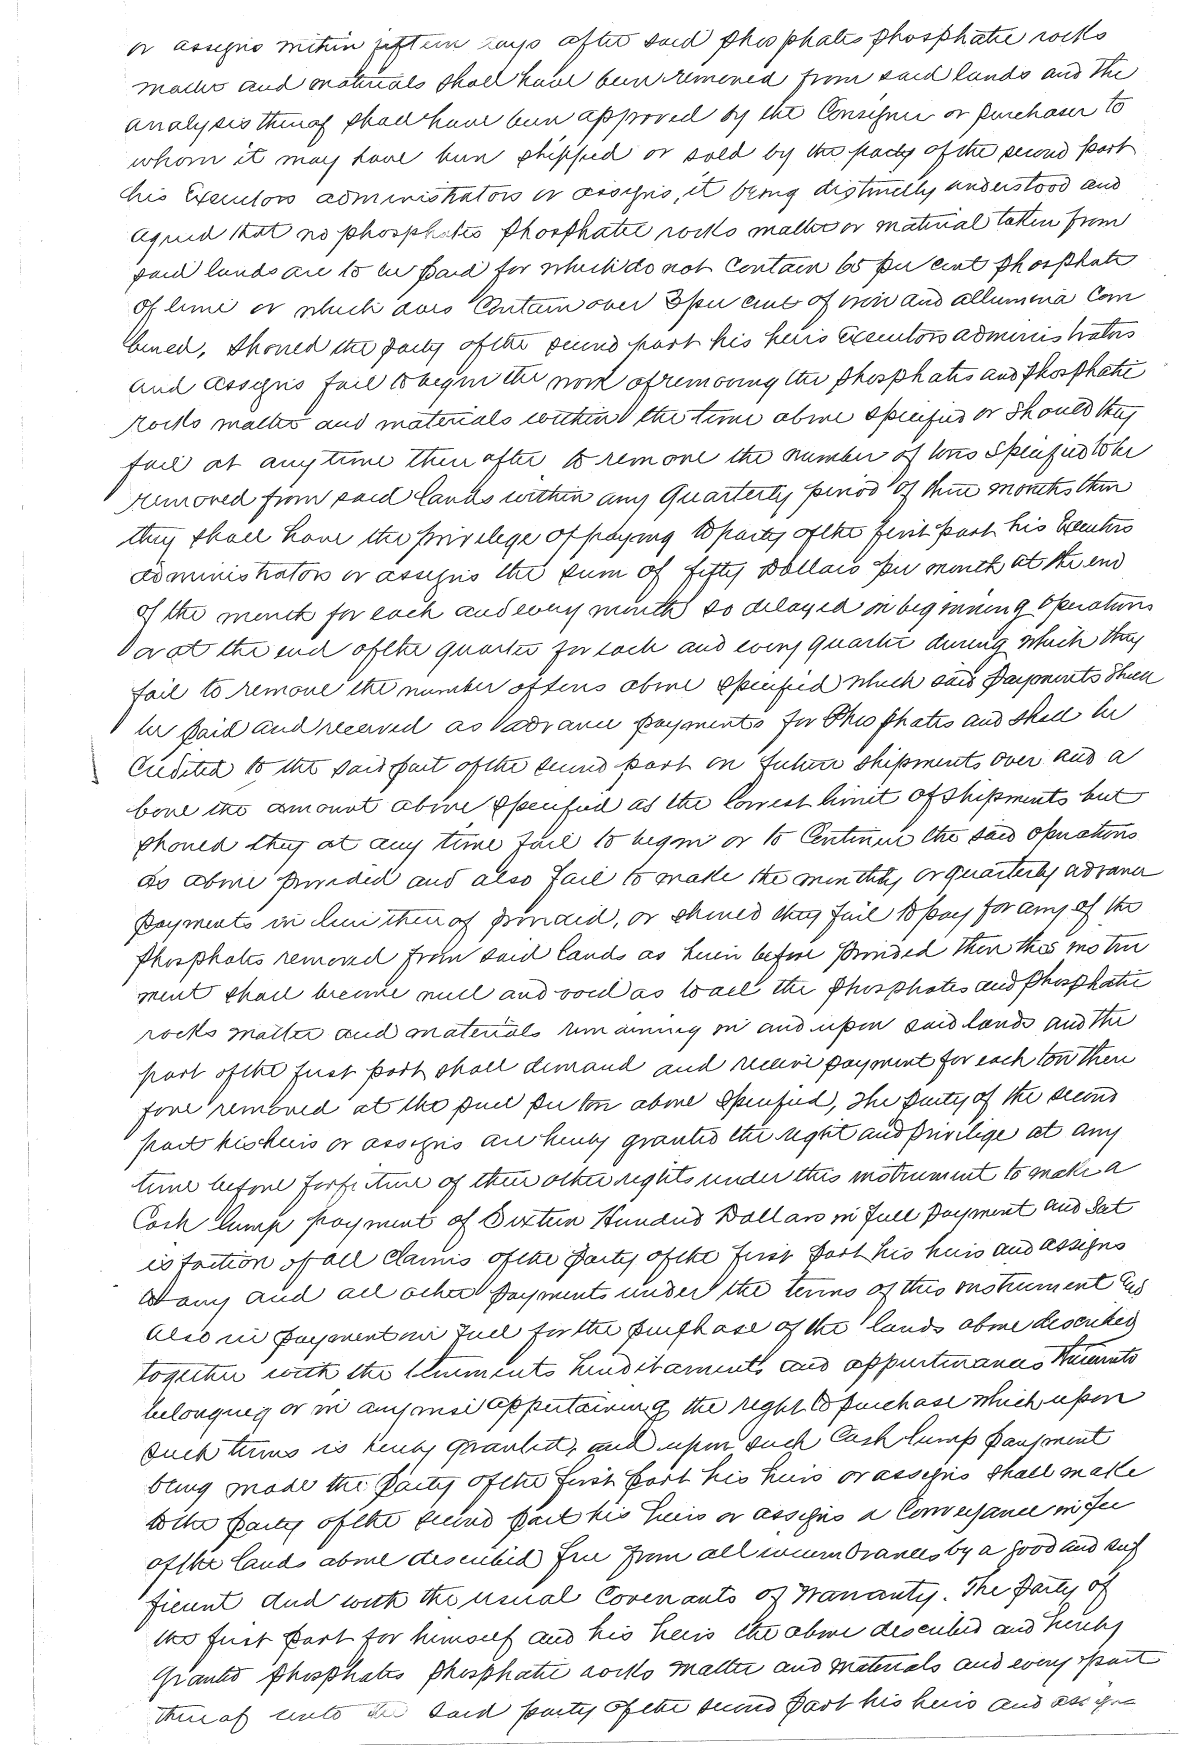 or assigns within fifteen days after said phosphates phosphatic rocks
matter and materials shall have been removed from said lands and the
analysis thereof shall have been approved by the Consignee or purchaser to
whom it may have been shipped or sold by the party of the second part
his Executors administrators or assigns, it being distinctly understood and
agreed that no phosphates phosphatic rocks matter or material taken from
said lands are to be paid for which do not contain 65 per cent phosphate
of lime or which does contain over 3 per cent of iron and allumina Com
bined, Should the party of the second part his heirs Executors administrators
and assigns fail to begin the work of removing the phosphates and phosphatic
rocks matter and materials within the time above specified or should they
fail at any time there after to remove the number of tons specified to be
removed from said lands within any Quarterly period of three months then
they shall have the privilege of paying to party of the first part his Executors
administrators or assigns the sum of fifty Dollars per month at the end
of the month for each and every month so delayed in beginning operations
or at the end of the quarter for each and every quarter during which they
fail to remove the number of tons above specified which said payments shall
be paid and received as advance payments for Phosphates and shall be
Credited to the said part of the second part on future shipments over and a
bove the amount above specified as the lowest limit of shipments but
should they at any time fail to begin or to Continue the said operations
as above provided and also fail to make the monthly or quarterly advance
payments in lieu thereof provided, or should they fail to pay for any of the
phosphates removed from said lands as herein before provided then this instru
ment shall become null and void as to all the phosphates and phosphatic
rocks matter and materials remaining in and upon said lands and the
part of the first part shall demand and receive payment for each ton there
fore removed at the price per ton above specified, The party of the second
part his heirs or assigns are hereby granted the right and privilige at any
time before forfiture of their other rights under this instrument to make a
Cash lump payment of Sixteen Hundred Dollars in full payment and Sat
isfaction of all Claims of the party of the first part his heirs and assigns
to any and all other payments under the terms of this instrument and
also in payment in full for the purchase of the lands above described
together with the tenements hereditaments and appurtenances thereunto
belonging or in any wise appertaining the right to purchase which upon
such terms is hereby granted, and upon such Cash lump payment
being made the party of the first part his heirs or assigns shall make
to the party of the second part his heirs or assigns a Conveyance in fee
of the lands above described free from all incumbrances by a good and suf
ficient deed with the usual Covenants of Warranty. The party of
the first part for himself and his heirs the above described and hereby
granted phosphates phosphatic rocks matter and materials and every part
thereof unto the said party of the second part his heirs and assigns